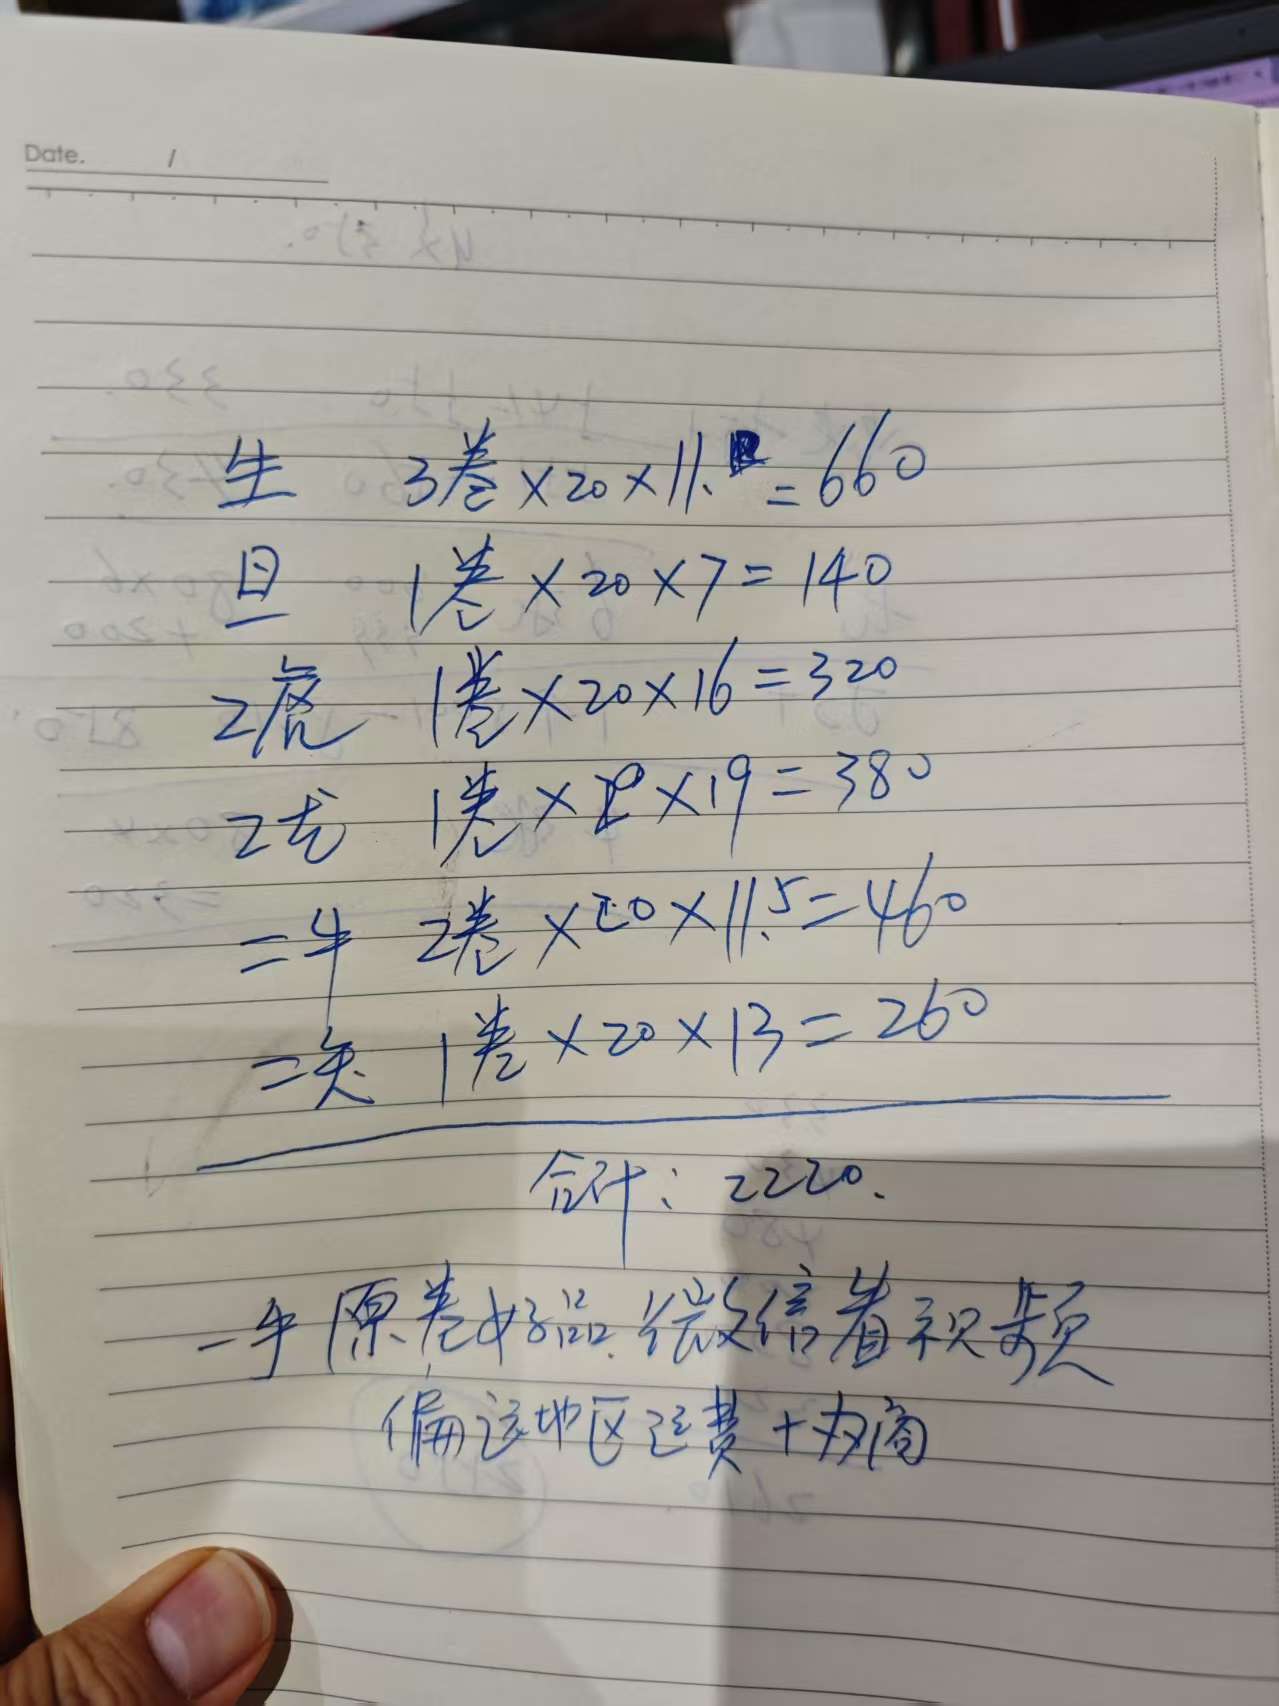 Date. /
生 3卷×20×11.=660
旦 1卷×20×7=140
2虎 1卷×20×16=320
2龙 1卷×20×19=380
二牛 2卷×20×11.5=460
二兔 1卷×20×13=260
合计：2220.
一手原卷好品.微信看视频
偏远地区运费+协商